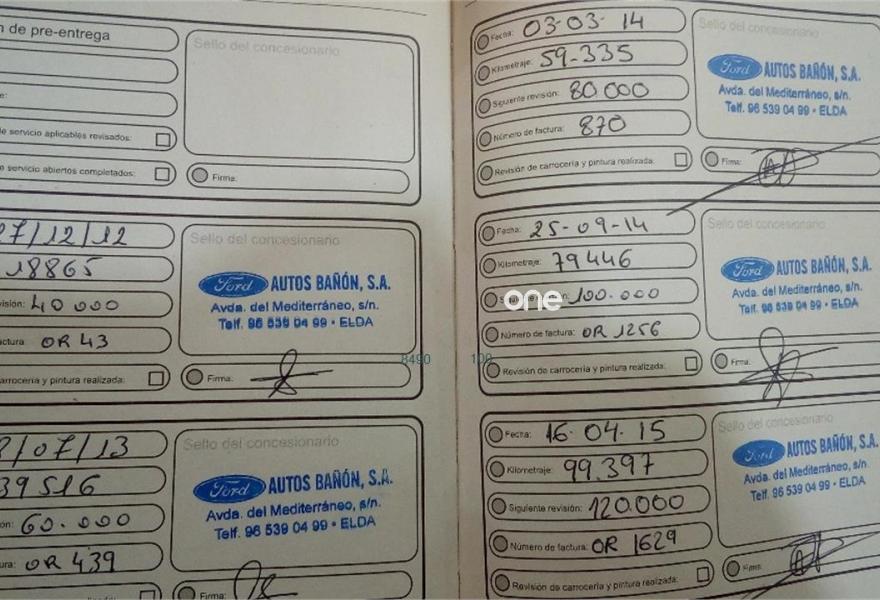 n de pre-entrega
Sello del concesionario
e:
de servicio aplicables revisados:
o servicio abiertos completados:
Firma:
27/12/12
18865
visión: 40 000
actura: OR 43
carrocería y pintura realizada:
Sello del concesionario
Ford AUTOS BAÑÓN, S.A.
Avda. del Mediterráneo, s/n.
Telf. 96 539 04 99 • ELDA
Firma:
/07/13
39516
ón: 60.000
ura: OR 439
Sello del concesionario
Ford AUTOS BAÑÓN, S.A.
Avda. del Mediterráneo, s/n.
Telf. 96 539 04 99 • ELDA
Firma:
8490
Fecha: 03-03-14
Kilometraje: 59-335
Siguiente revisión: 80 000
Número de factura: 870
Revisión de carrocería y pintura realizada:
Sello del concesionario
Ford AUTOS BAÑÓN, S.A.
Avda. del Mediterráneo, s/n.
Telf. 96 539 04 99 • ELDA
Firma:
Fecha: 25-09-14
Kilometraje: 79446
100.000
one
Número de factura: OR 1256
100
Revisión de carrocería y pintura realizada:
Sello del concesionario
Ford AUTOS BAÑÓN, S.A.
Avda. del Mediterráneo, s/n.
Telf. 96 539 04 99 • ELDA
Firma:
Fecha: 16-04-15
Kilometraje: 99.397
Siguiente revisión: 120.000
Número de factura: OR 1629
Revisión de carrocería y pintura realizada:
Sello del concesionario
Ford AUTOS BAÑÓN, S.A.
Avda. del Mediterráneo, s/n.
Telf. 96 539 04 99 • ELDA
Firma: